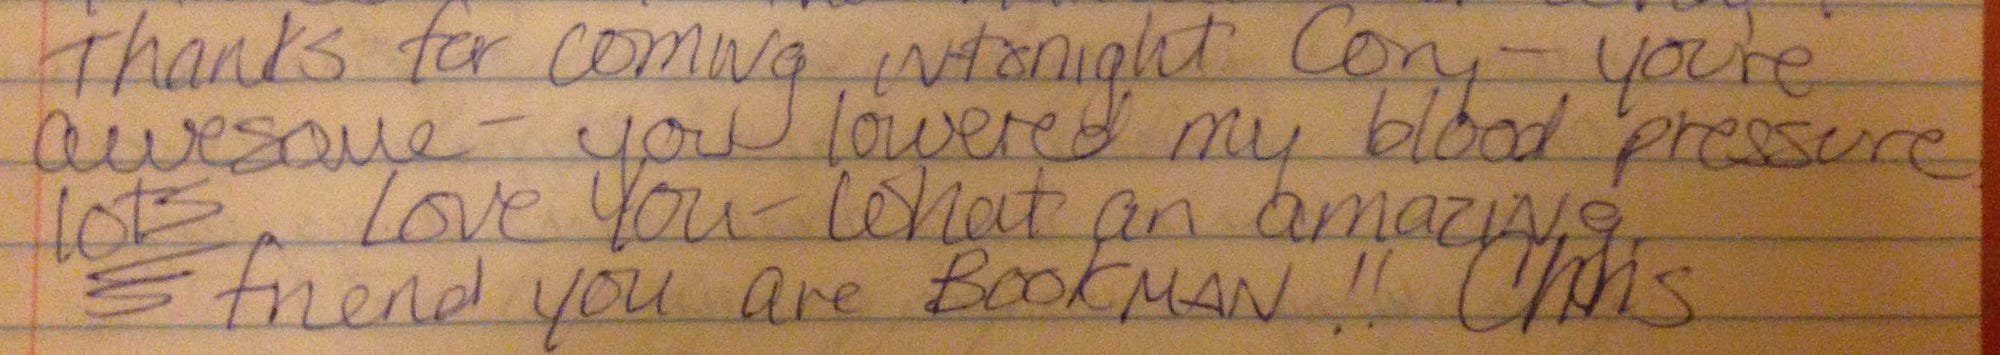 Thanks for coming in tonight Cory - you're
awesome - you lowered my blood pressure
lots. Love You - What an amazing
friend you are BOOKMAN!! Chris